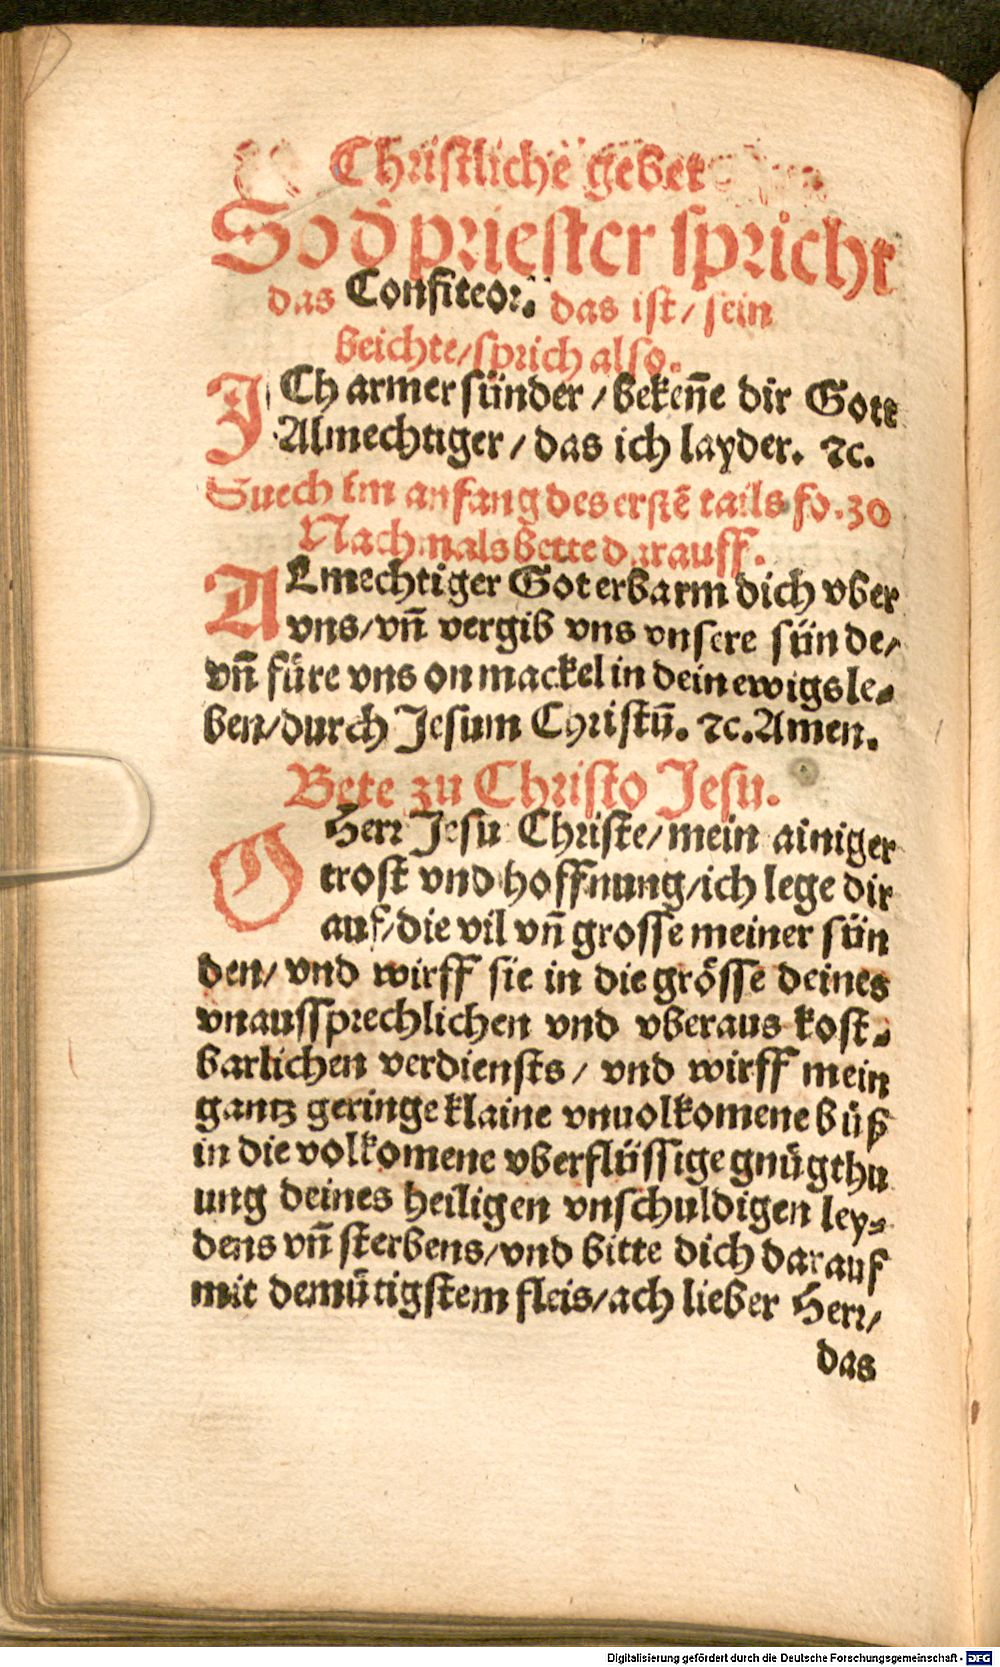 Christlichē gebet
So d̄ priester spricht
das Confiteor. das ist / sein
beichte / sprich also.
ICh armer sünder / bekeñe dir Gott
Almechtiger / das ich layder. ⁊c.
Suech im anfang des erstē tails fo. 30
Nachmals bette darauff.
ALmechtiger Got erbarm dich vber
vns / vñ vergib vns vnsere sünde /
vñ füre vns on mackel in dein ewigs le⸗
ben / durch Jesum Christū. ⁊c. Amen.
Bete zu Christo Jesu.
O Herr Jesu Christe / mein ainiger
trost vnd hoffnung / ich lege dir
auf / die vil vñ grosse meiner sün
den / vnd wirff sie in die grösse deines
vnaussprechlichen vnd vberaus kost⸗
barlichen verdiensts / vnd wirff mein
gantz geringe klaine vnuolkomene bůß
in die volkomene vberflüssige gnůgthu
ung deines heiligen vnschuldigen ley⸗
dens vñ sterbens / vnd bitte dich darauf
mit demůtigstem fleis / ach lieber Herr /
das
Digitalisierung gefördert durch die Deutsche Forschungsgemeinschaft - DFG